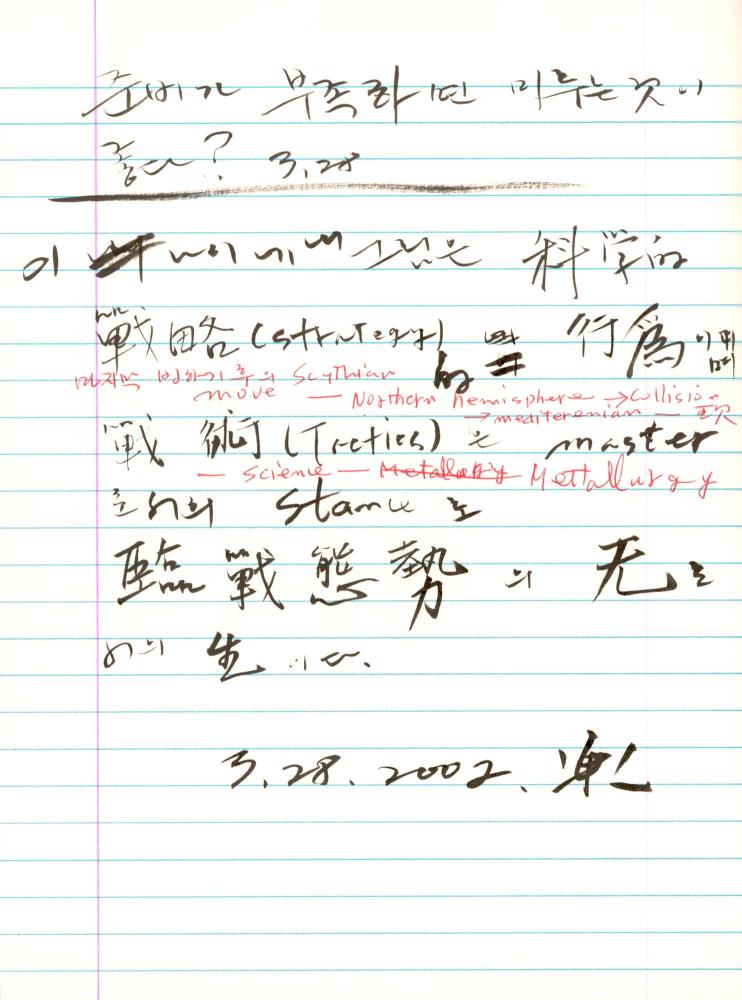 준비가 부족하면 미루는 것이
좋다? 3.28
이 그림은 科学的
戰略(strategy) 的 行為 이며
마지막 빙하기 후의 Scythian
move — Northern hemisphere → Collision
→ mediterenian —
戰術(Tactics)은 master
— science — Metallurgy Mettallurgy
로서의 Stance로
臨戰態勢의 无로
서의 生이다.
3.28.2002.